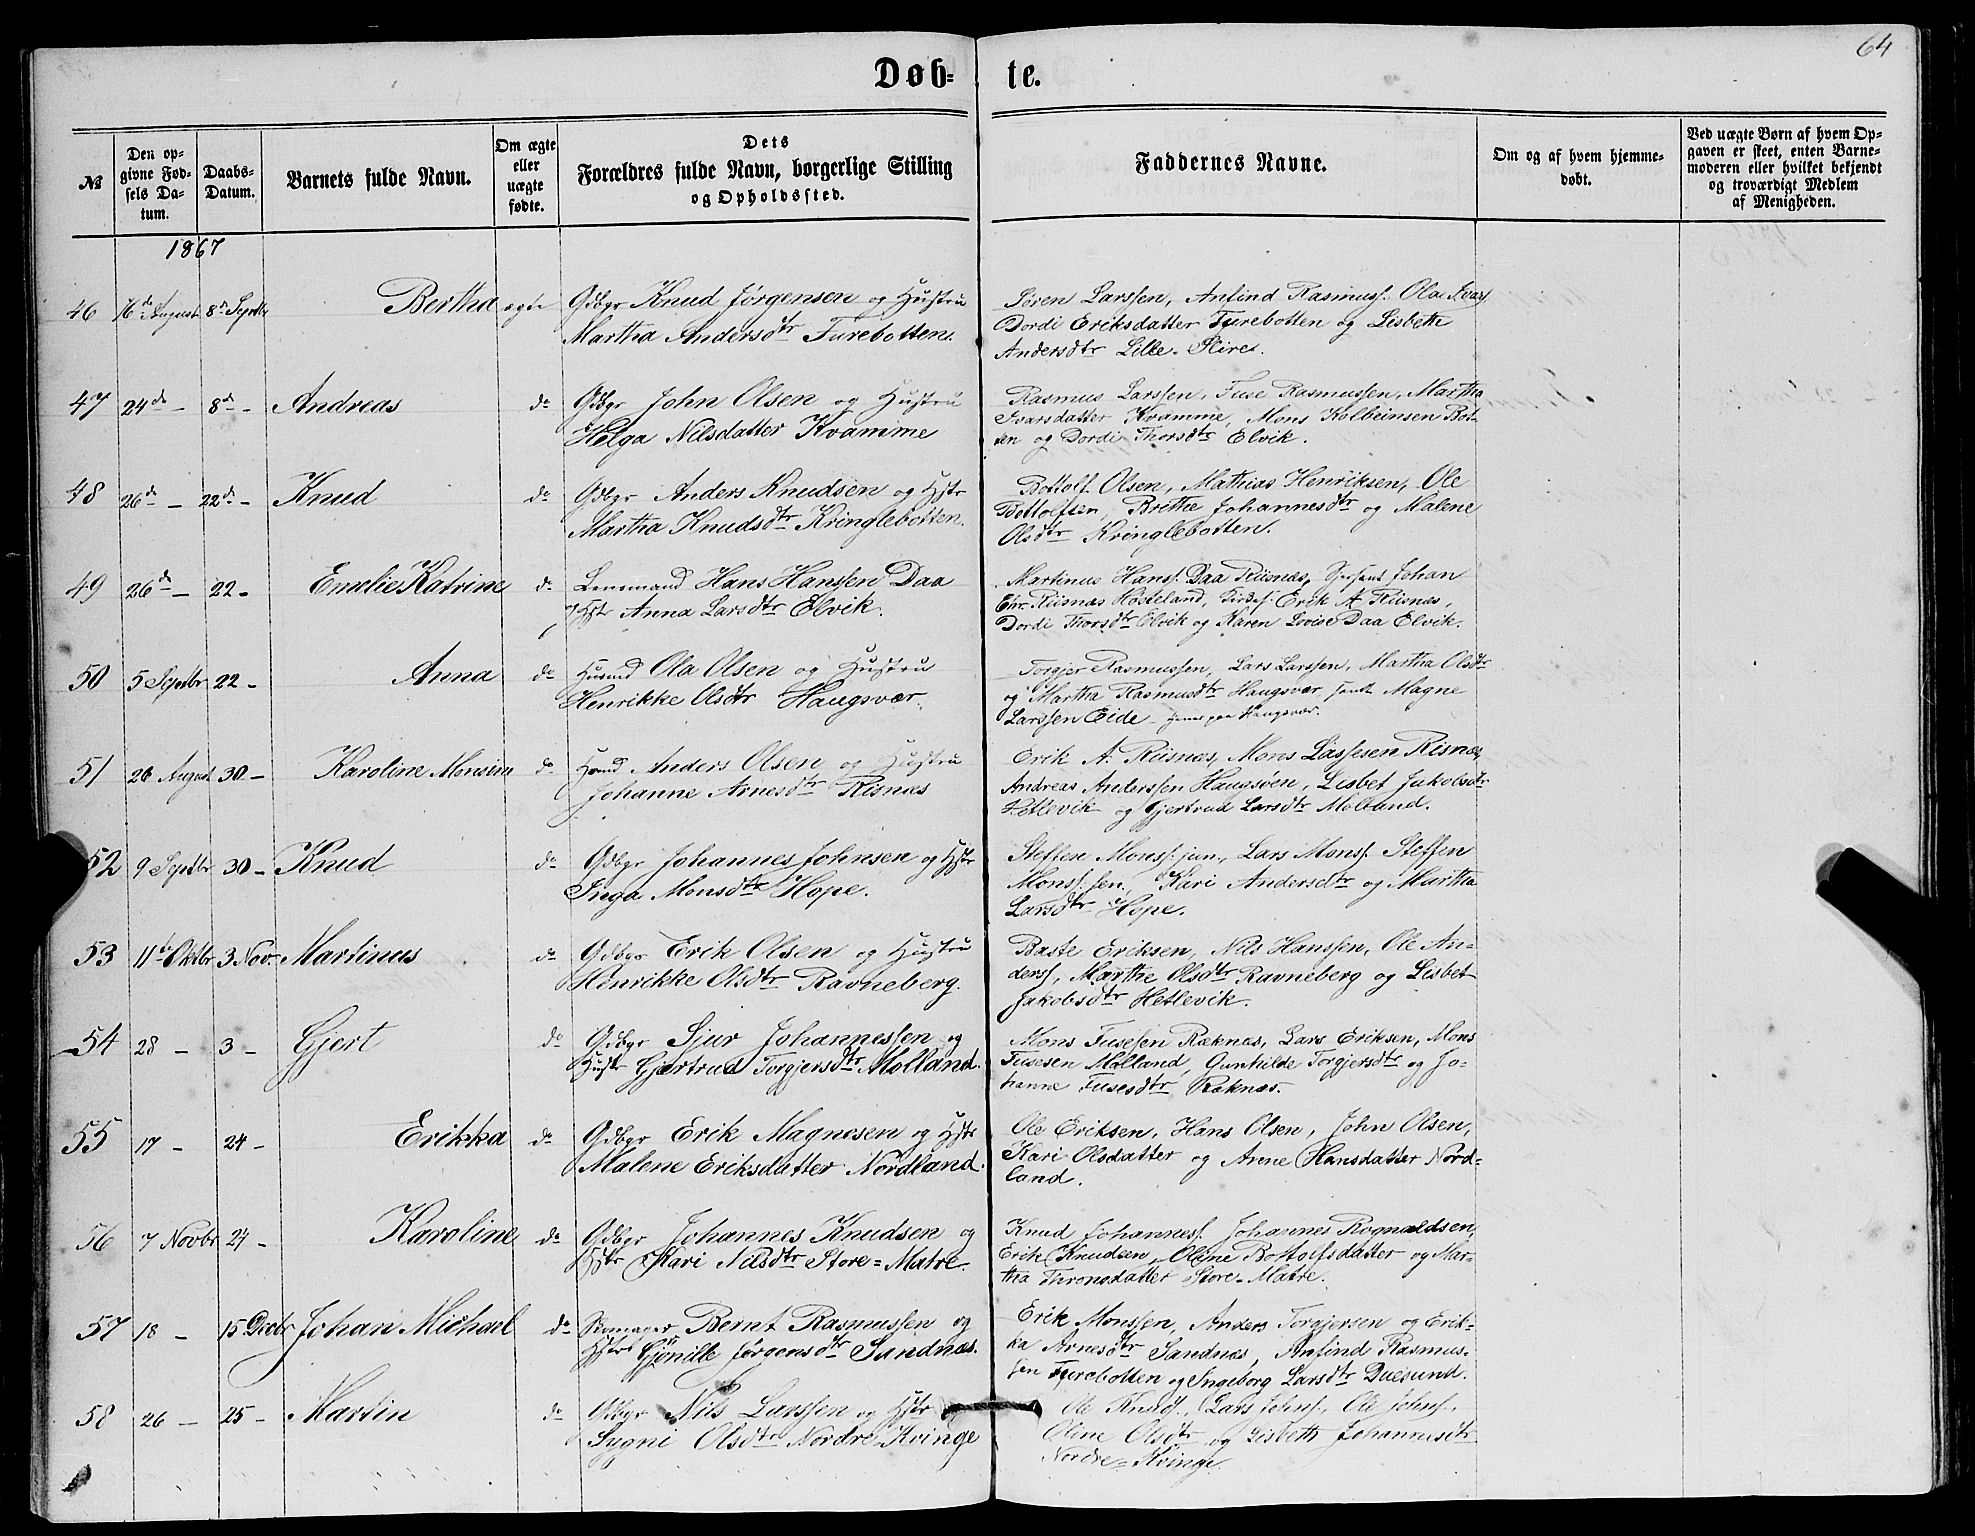 64
Døb-
te.
№
Den op-
givne Fød-
sels Da-
tum.
Daabs-
Datum.
Barnets fulde Navn.
Om ægte
eller
uægte
fødte.
Dets
Forældres fulde Navn, borgerlige Stilling
og Opholdssted.
Faddernes Navne.
Om og af hvem hjemme-
døbt.
Ved uægte Børn af hvem Op-
gaven er skeet, enten Barne-
moderen eller hvilket bekjendt
og troværdigt Medlem
af Menigheden.
1867
46 16de August 8de Septbr Bertha ægte
Gdbgr Knud Jørgensen og Hustru
Martha Andersdtr Furebotten.
Søren Larssen, Anfind Rasmuss. Ola Ivars
Dordi Eriksdatter Furebotten og Lisbeth
Andersdtr Lille-
47 24de - 8de - Andreas do
Gdbgr John Olsen og Hustru
Helga Nilsdatter Kvamme
Rasmus Larssen, Fuse Rasmussen, Martha
Ivarsdatter Kvamme, Mons Kolbeinsen Bot-
ten og Dordi Thorsdtr Elvik.
48 26de - 22de - Knud do
Gdbgr Anders Knudsen og Hstr
Martha Knudsdtr Kringlebotten.
Bottolf Olsen, Mathias Henriksen, Ole
Bottolfsen, Brithe Johannesdtr og Malene
Olsdtr Kringlebotten.
49 26de - 22 - Emelie Katrine do
Lensmand Hans Hanssen Daa
Hstr Anna Larsdtr Elvik.
Martinus Hanss. Daa Riisnæs, Johan
Chr. Riisnæs Høsteland, Erik A. Riisnæs,
Dordi Thorsdtr Elvik og Karen Lovise Daa Elvik.
50 5 Septbr 22 - Anna do
Husmd Ola Olsen og Hustru
Henrikke Olsdtr Haugsvær.
Torgjer Rasmussen, Lars Larssen, Martha Olsdtr
og Martha Rasmusdtr Haugsvær samt Magne
Larssen Eide - paa Haugsvær.
51 26 August 30 - Karoline Monsine do
Hmd Anders Olsen og Hustru
Johanne Arnesdtr Risnæs
Erik A. Riisnæs, Mons Lassesen Risnæs,
Andreas Anderssen Haugsøen, Lisbet Jakobsdtr
Hetlevik og Gjertrud Larsdtr Molland.
52 9 Septbr 30 - Knud do
Gdbgr Johannes Johnsen og Hstr
Inga Monsdtr Hope.
Steffen Monss. jun., Lars Monss. Steffen
Monss. sen., Kari Andersdtr og Martha
Larsdtr Hope.
53 11te Oktbr 3 Nov. Martinus do
Gdbgr Erik Olsen og Hustru
Henrikke Olsdtr Ravneberg.
Baste Eriksen, Nils Hanssen, Ole An-
derss, Marthe Olsdtr Ravneberg og Lisbet
Jakobsdtr Hetlevik.
54 28 - 3 - Gjert do
Gdbgr Sjur Johannessen og
Hustr Gjertrud Torgjersdtr Molland.
Mons Fusesen Ræknæs, Lars Eriksen, Mons
Fusesen Molland, Gunhilde Torgjersdtr og Jo-
hanne Fusesdtr Ræknæs.
55 17 - 24 - Erikka do
Gdbgr Erik Magnesen og Hstr
Malene Eriksdatter Nordland.
Ole Eriksen, Hans Olsen, John Olsen,
Kari Olsdatter og Anne Hansdatter Nord-
land.
56 7 Novbr 24 - Karoline do
Gdbgr Johannes Knudsen og
Hstr Kari Nilsdtr Store-Matre.
Knud Johanness. Johannes Rognaldsen,
Erik Knudsen, Oline Bottolfsdatter og Mar-
tha Thronsdatter Store-Matre.
57 18 - 15 Decbr Johan Michael do
Skomager Bernt Rasmussen og
Hstr Gjønille Jørgensdtr Sandnæs.
Erik Monssen, Anders Torgjersen og Erik-
ka Arnesdtr Sandnæs, Anfind Rasmus-
sen Furebotten og Ingeborg Larsdtr Duesund.
58 26 - 25 - Martin do
Gdbgr Nils Larssen og Hstr
Sygni Olsdtr Nordre-Kvinge
Ole Knuds., Lars Johns., Ole Johns.,
Oline Olsdtr og Lisbeth Johannesdtr
Nordre-Kvinge.